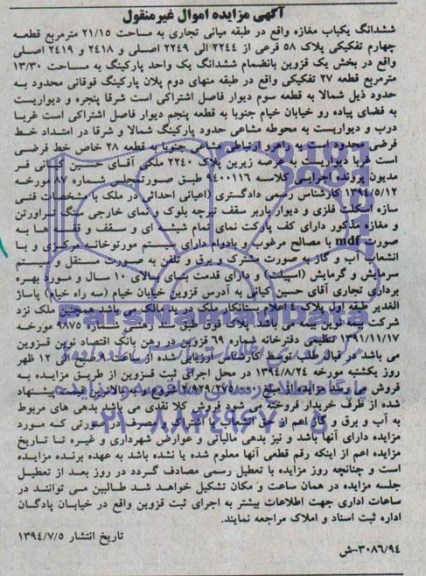 آگهی مزایده اموال غیرمنقول
ششدانگ یکباب مغازه واقع در طبقه میانی تجاری به مساحت ۲۱/۱۵ مترمربع قطعه
چهارم تفکیکی پلاک ۵۸ فرعی از ۲۲۴۴ الی ۲۲۴۹ اصلی و ۲۴۱۸ و ۲۴۱۹ اصلی
واقع در بخش یک قزوین بانضمام ششدانگ یک واحد پارکینگ به مساحت ۱۳/۳۰
مترمربع قطعه ۲۷ تفکیکی واقع در طبقه منهای دوم پلان پارکینگ فوقانی محدود به
حدود ذیل شمالا به قطعه سوم دیوار فاصل اشتراکی است شرقا پنجره و دیواریست
به فضای پیاده رو خیابان خیام جنوبا به قطعه پنجم دیوار فاصل اشتراکی است غربا
درب و دیواریست به محوطه مشاعی حدود پارکینگ شمالا و شرقا در امتداد خط
فرضی محدود است به راهرو ارتباطی مشاعی جنوبا به قطعه ۲۸ خاص خط فرضی
است غربا دیواریست به عرصه زیرین پلاک ۲۲۴۰ ملکی آقای حسین کیانی فر
مدیون پرونده اجرایی کلاسه ۹۴۰۰۱۱۶ طبق صورتمجلس شماره ۸۷ مورخه
۱۳۹۴/۵/۱۲ کارشناس رسمی دادگستری (اعیانی احداثی در ملک با مشخصات فنی
سازه اسکلت فلزی و دیوار باربر سقف تیرچه بلوک و نمای خارجی سنگ تراورتن
و مغازه مذکور دارای کف پارکت نمای تمام شیشه ای و سقف و قفسه ها به
صورت mdf با مصالح مرغوب و بادوام دارای سیستم موتورخانه مرکزی و با
انشعاب آب و گاز به صورت مشترک و برق و تلفن به صورت مستقل و سیستم
سرمایش و گرمایش (اسپلت) و دارای قدمت بنای بالای ۱۰ سال و مورد بهره
برداری تجاری آقای حسین کیانی به آدرس قزوین خیابان خیام (سه راه خیام) پاساژ
الغدیر طبقه اول پلاک با اعلام بستانکار ملک در ید مالک می باشد همچنین ملک نزد
شرکت بیمه نوین بیمه می باشد. پلاک فوق طبق سند رهنی ۹۸۷۵ مورخه
۱۳۹۱/۱۱/۱۷ تنظیمی دفترخانه شماره ۶۹ قزوین در رهن بانک اقتصاد نوین قزوین
می باشد و در قبال طلب توسط کارشناس ارزیابی شده از ساعت ۹ صبح الی ۱۲ ظهر
روز یکشنبه مورخه ۱۳۹۴/۸/۲۴ در محل اجرای ثبت قزوین از طریق مزایده به
فروش می رسد مزایده از مبلغ شروع و به بالاترین قیمت پیشنهاد
شده از طرف خریدار فروخته می شود فروش کلا نقدی می باشد بدهی های مربوط
به آب و برق و گاز اعم از حق انشعاب یا اشتراک و مصرف در صورتی که مورد
مزایده دارای آنها باشد و نیز بدهی مالیاتی و عوارض شهرداری و غیره تا تاریخ
مزایده اعم از اینکه رقم قطعی آنها معلوم شده یا نشده باشد به عهده برنده مزایده
است و چنانچه روز مزایده با تعطیل رسمی مصادف گردد در روز بعد از تعطیل
جلسه مزایده در همان ساعت و مکان تشکیل خواهد شد طالبین می توانند در
ساعات اداری جهت اطلاعات بیشتر به اجرای ثبت قزوین واقع در خیابان پادگان
اداره ثبت اسناد و املاک مراجعه نمایند.
تاریخ انتشار ۱۳۹۴/۷/۵
۳۰۸۶/۹۴-ش
ParsNamadData
۰۲۱-۸۸۳۴۹۶۷۰-۵